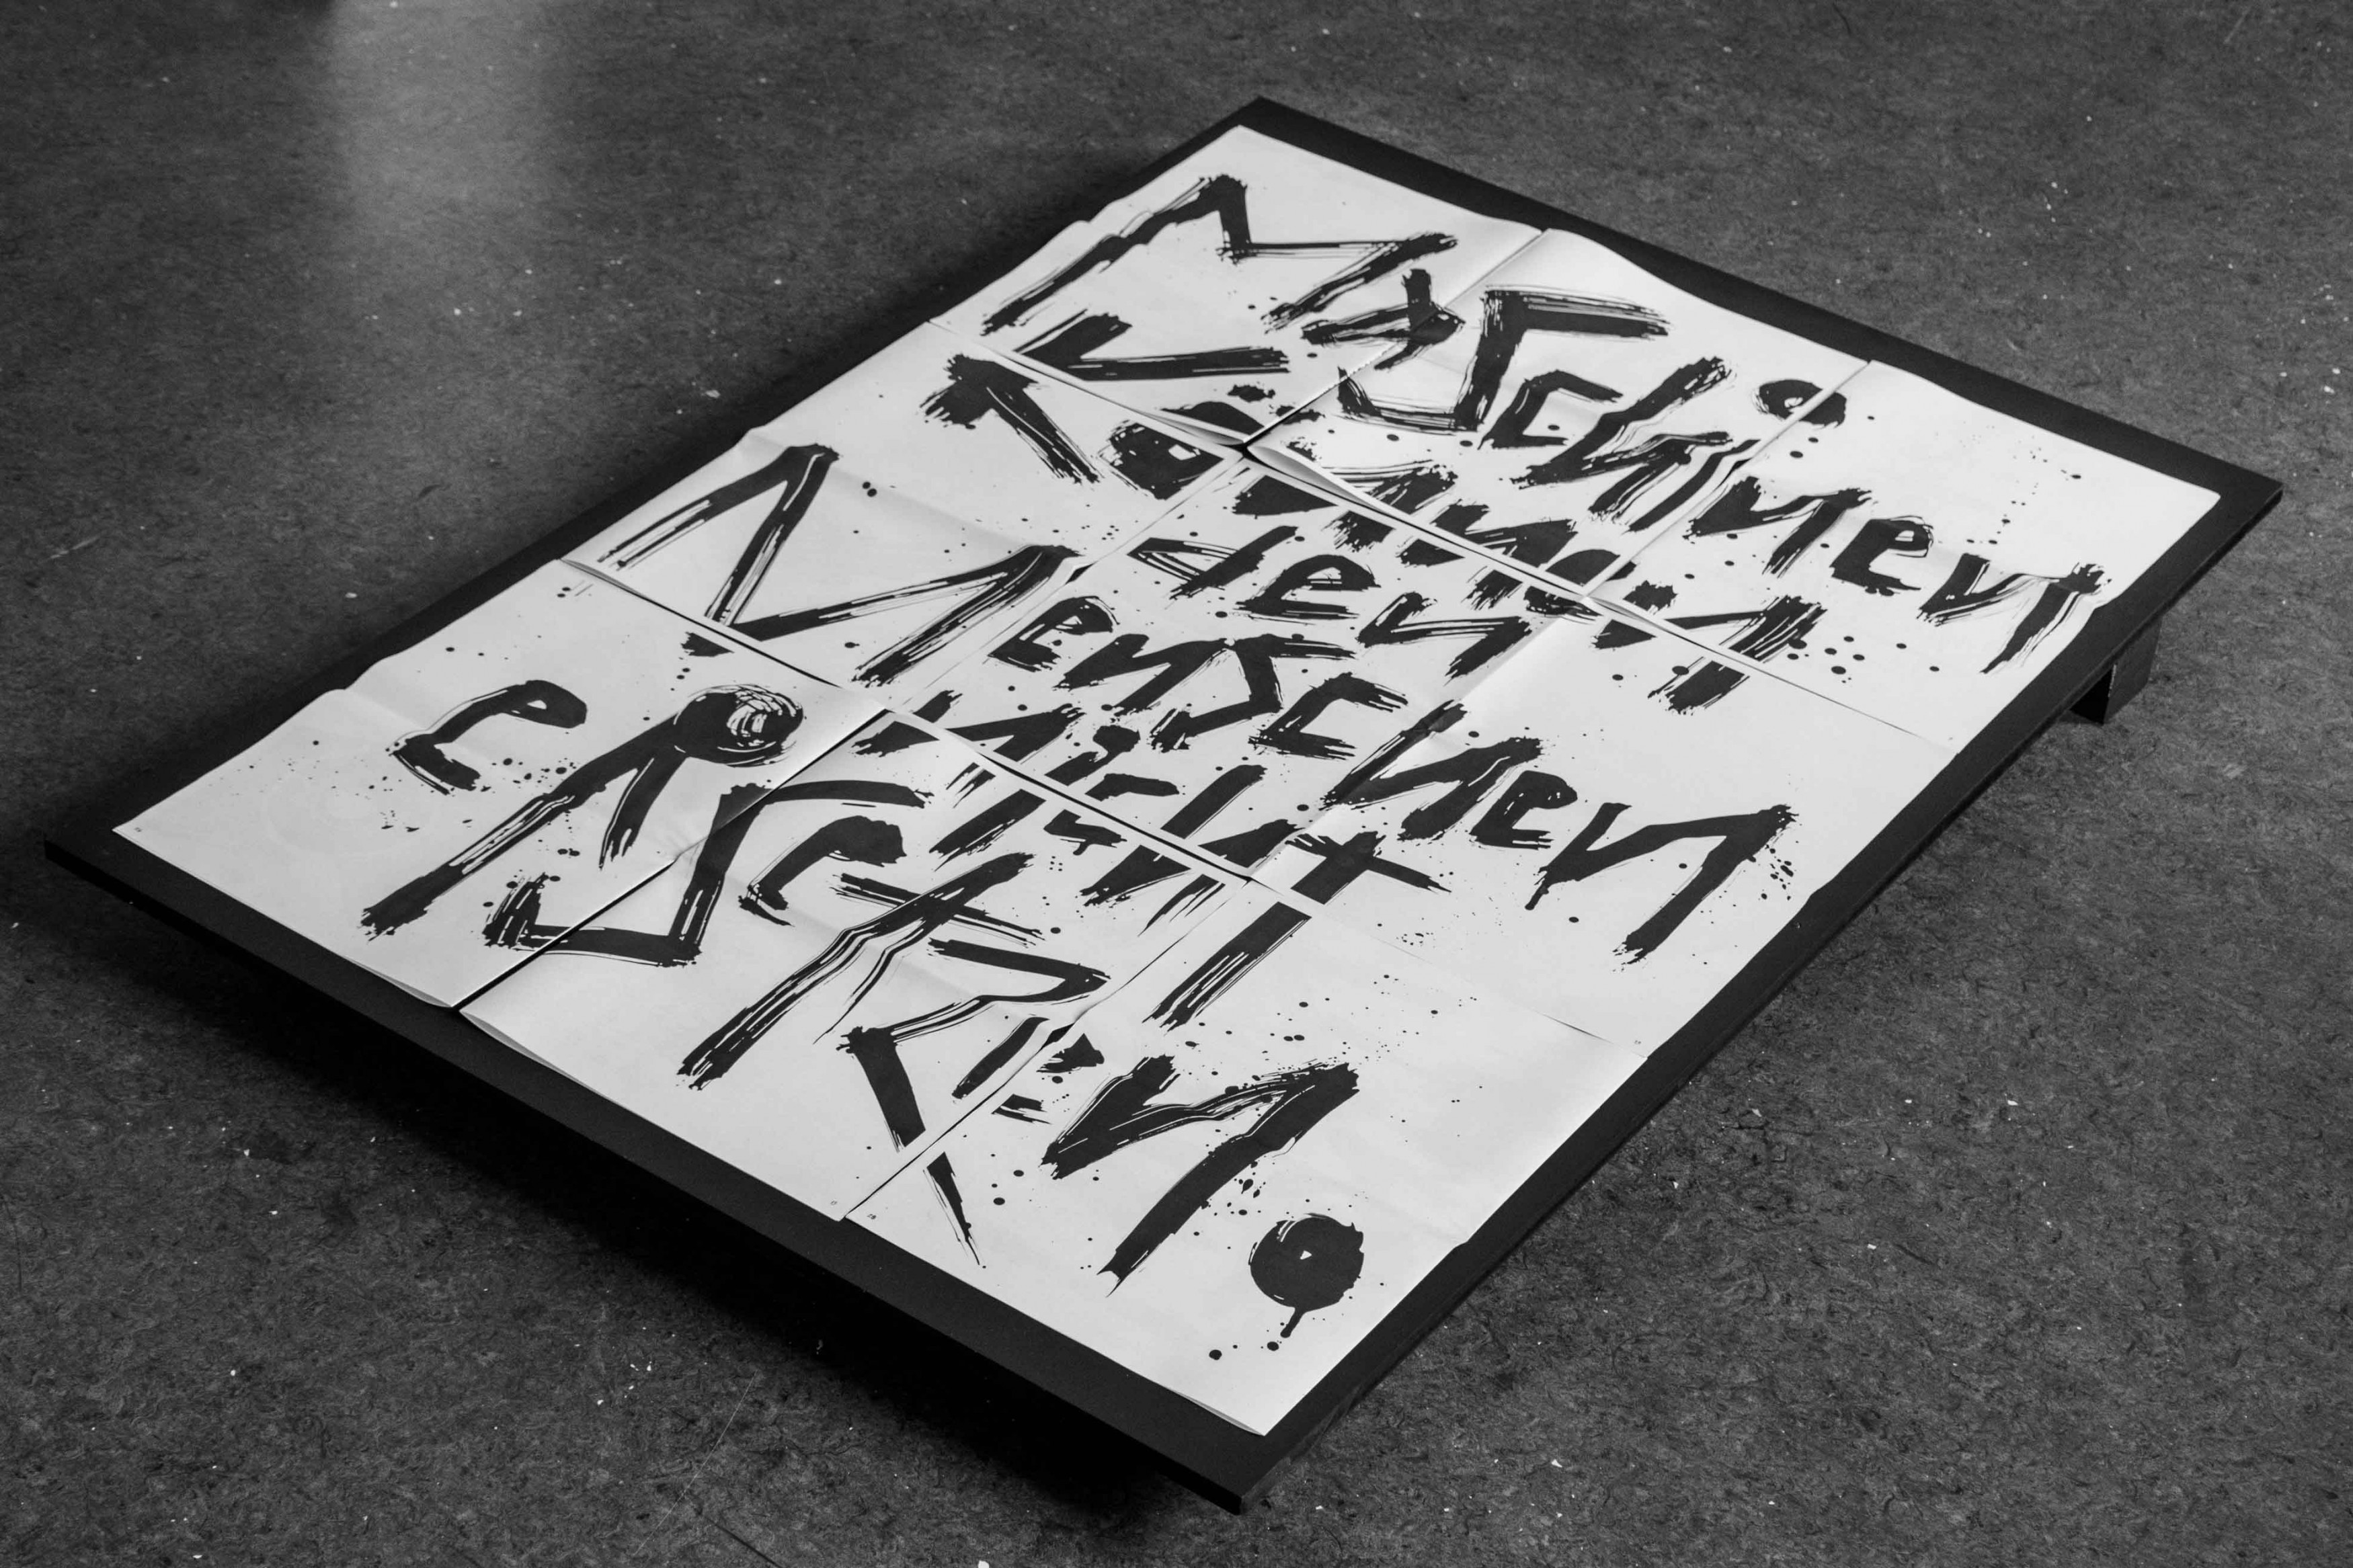 Maschinen
Können
den
Menschen
nicht
eRsetzen.